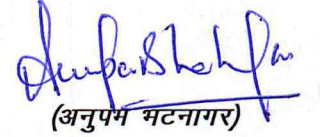 (अनुपम भटनागर)